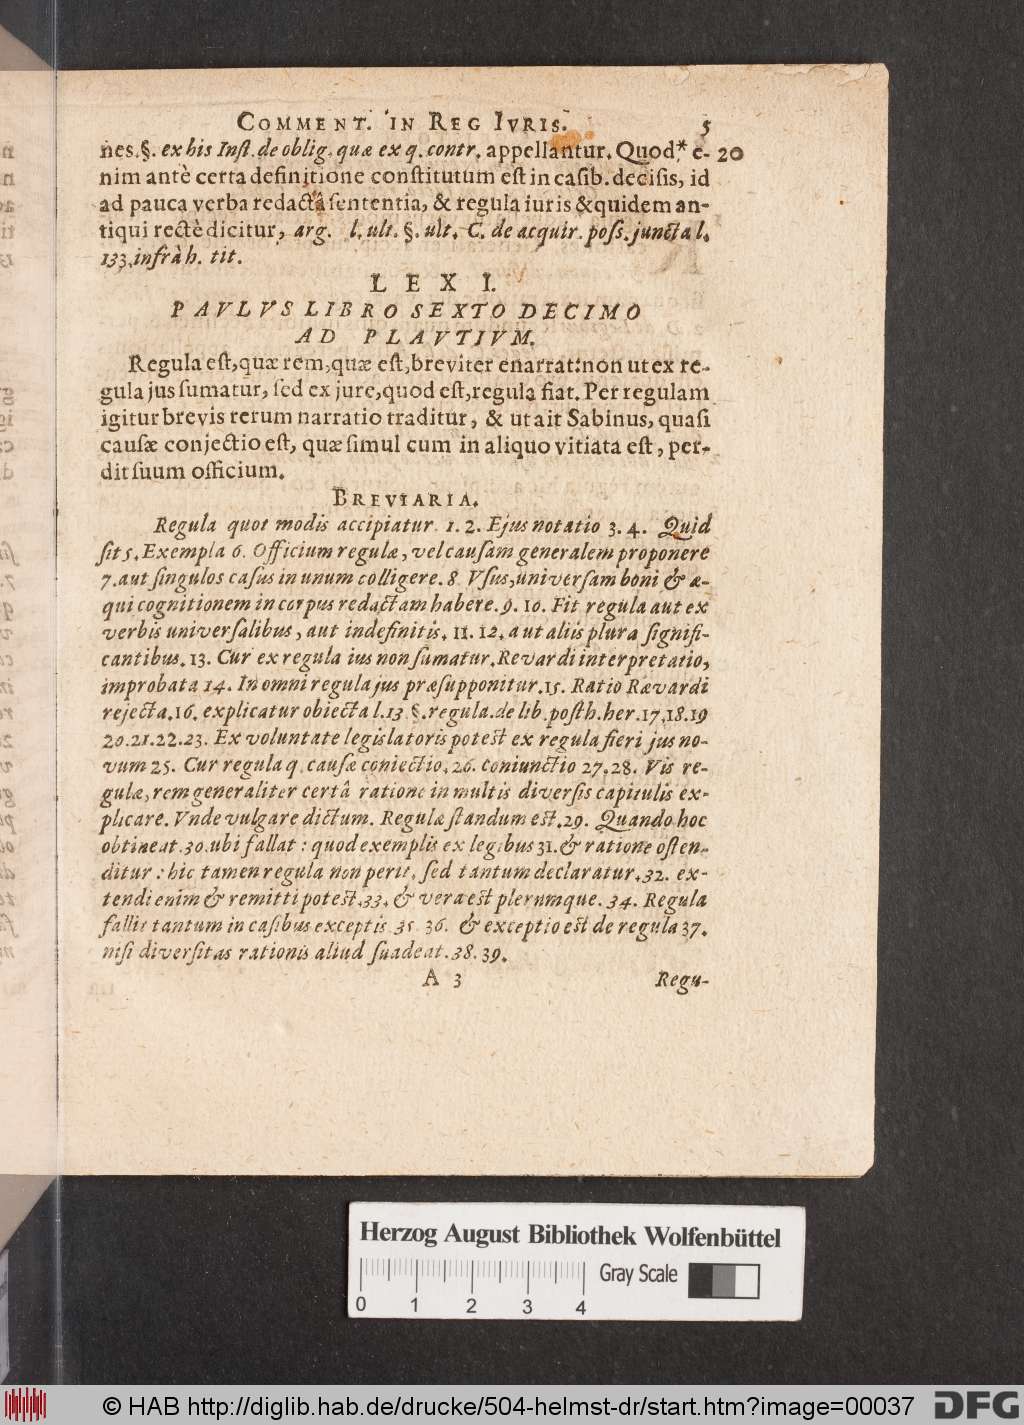 COMMENT. IN REG IVRIS. 5
nes.§. ex his Inſt. de oblig. quæ ex q. contr. appellantur. Quod* e- 20
nim antè certa definitione conſtitutum eſt in caſib. deciſis, id
ad pauca verba redactâ ſententia, & regula iuris & quidem an-
tiqui rectè dicitur, arg. l. ult. §. ult. C. de acquir. poſſ. juncta l.
133. infrà h. tit.
LEX I.
PAVLVS LIBRO SEXTO DECIMO
AD PLAVTIVM.
Regula eſt, quæ rem, quæ eſt, breviter enarrat: non ut ex re-
gula jus ſumatur, ſed ex jure, quod eſt, regula fiat. Per regulam
igitur brevis rerum narratio traditur, & ut ait Sabinus, quaſi
cauſæ conjectio eſt, quæ ſimul cum in aliquo vitiata eſt, per-
dit ſuum officium.
BREVIARIA.
Regula quot modis accipiatur. 1. 2. Ejus notatio 3. 4. Quid
ſit 5. Exempla 6. Officium regulæ, vel cauſam generalem proponere
7. aut ſingulos caſus in unum colligere. 8. Vſus, universam boni & æ-
qui cognitionem in corpus redactam habere. 9. 10. Fit regula aut ex
verbis univerſalibus, aut indefinitis. 11. 12. aut aliis plura ſignifi-
cantibus. 13. Cur ex regula ius non ſumatur. Revardi interpretatio,
improbata 14. In omni regula jus præſupponitur. 15. Ratio Rævardi
rejecta. 16. explicatur obiecta l. 13 §. regula. de lib. poſth. her. 17. 18. 19
20. 21. 22. 23. Ex voluntate legislatoris poteſt ex regula fieri jus no-
vum 25. Cur regula q. cauſæ coniectio. 26. coniunctio 27. 28. Vis re-
gulæ, rem generaliter certâ ratione in multis diverſis capitulis ex-
plicare. Vnde vulgare dictum. Regulæ ſtandum eſt. 29. Quando hoc
obtineat. 30. ubi fallat: quod exemplis ex legibus 31. & ratione oſten-
ditur: hic tamen regula non perit, ſed tantum declaratur. 32. ex-
tendi enim & remitti poteſt. 33. & vera eſt plerumque. 34. Regula
fallit tantum in caſibus exceptis 35. 36. & exceptio eſt de regula 37.
niſi diverſitas rationis aliud ſuadeat. 38. 39.
A 3 Regu-
Herzog August Bibliothek Wolfenbüttel
Gray Scale
0 1 2 3 4
© HAB http://diglib.hab.de/drucke/504-helmst-dr/start.htm?image=00037 DFG